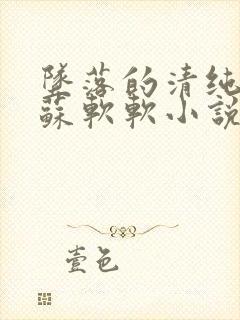 墜落的清純
蘇軟軟小說
壹色